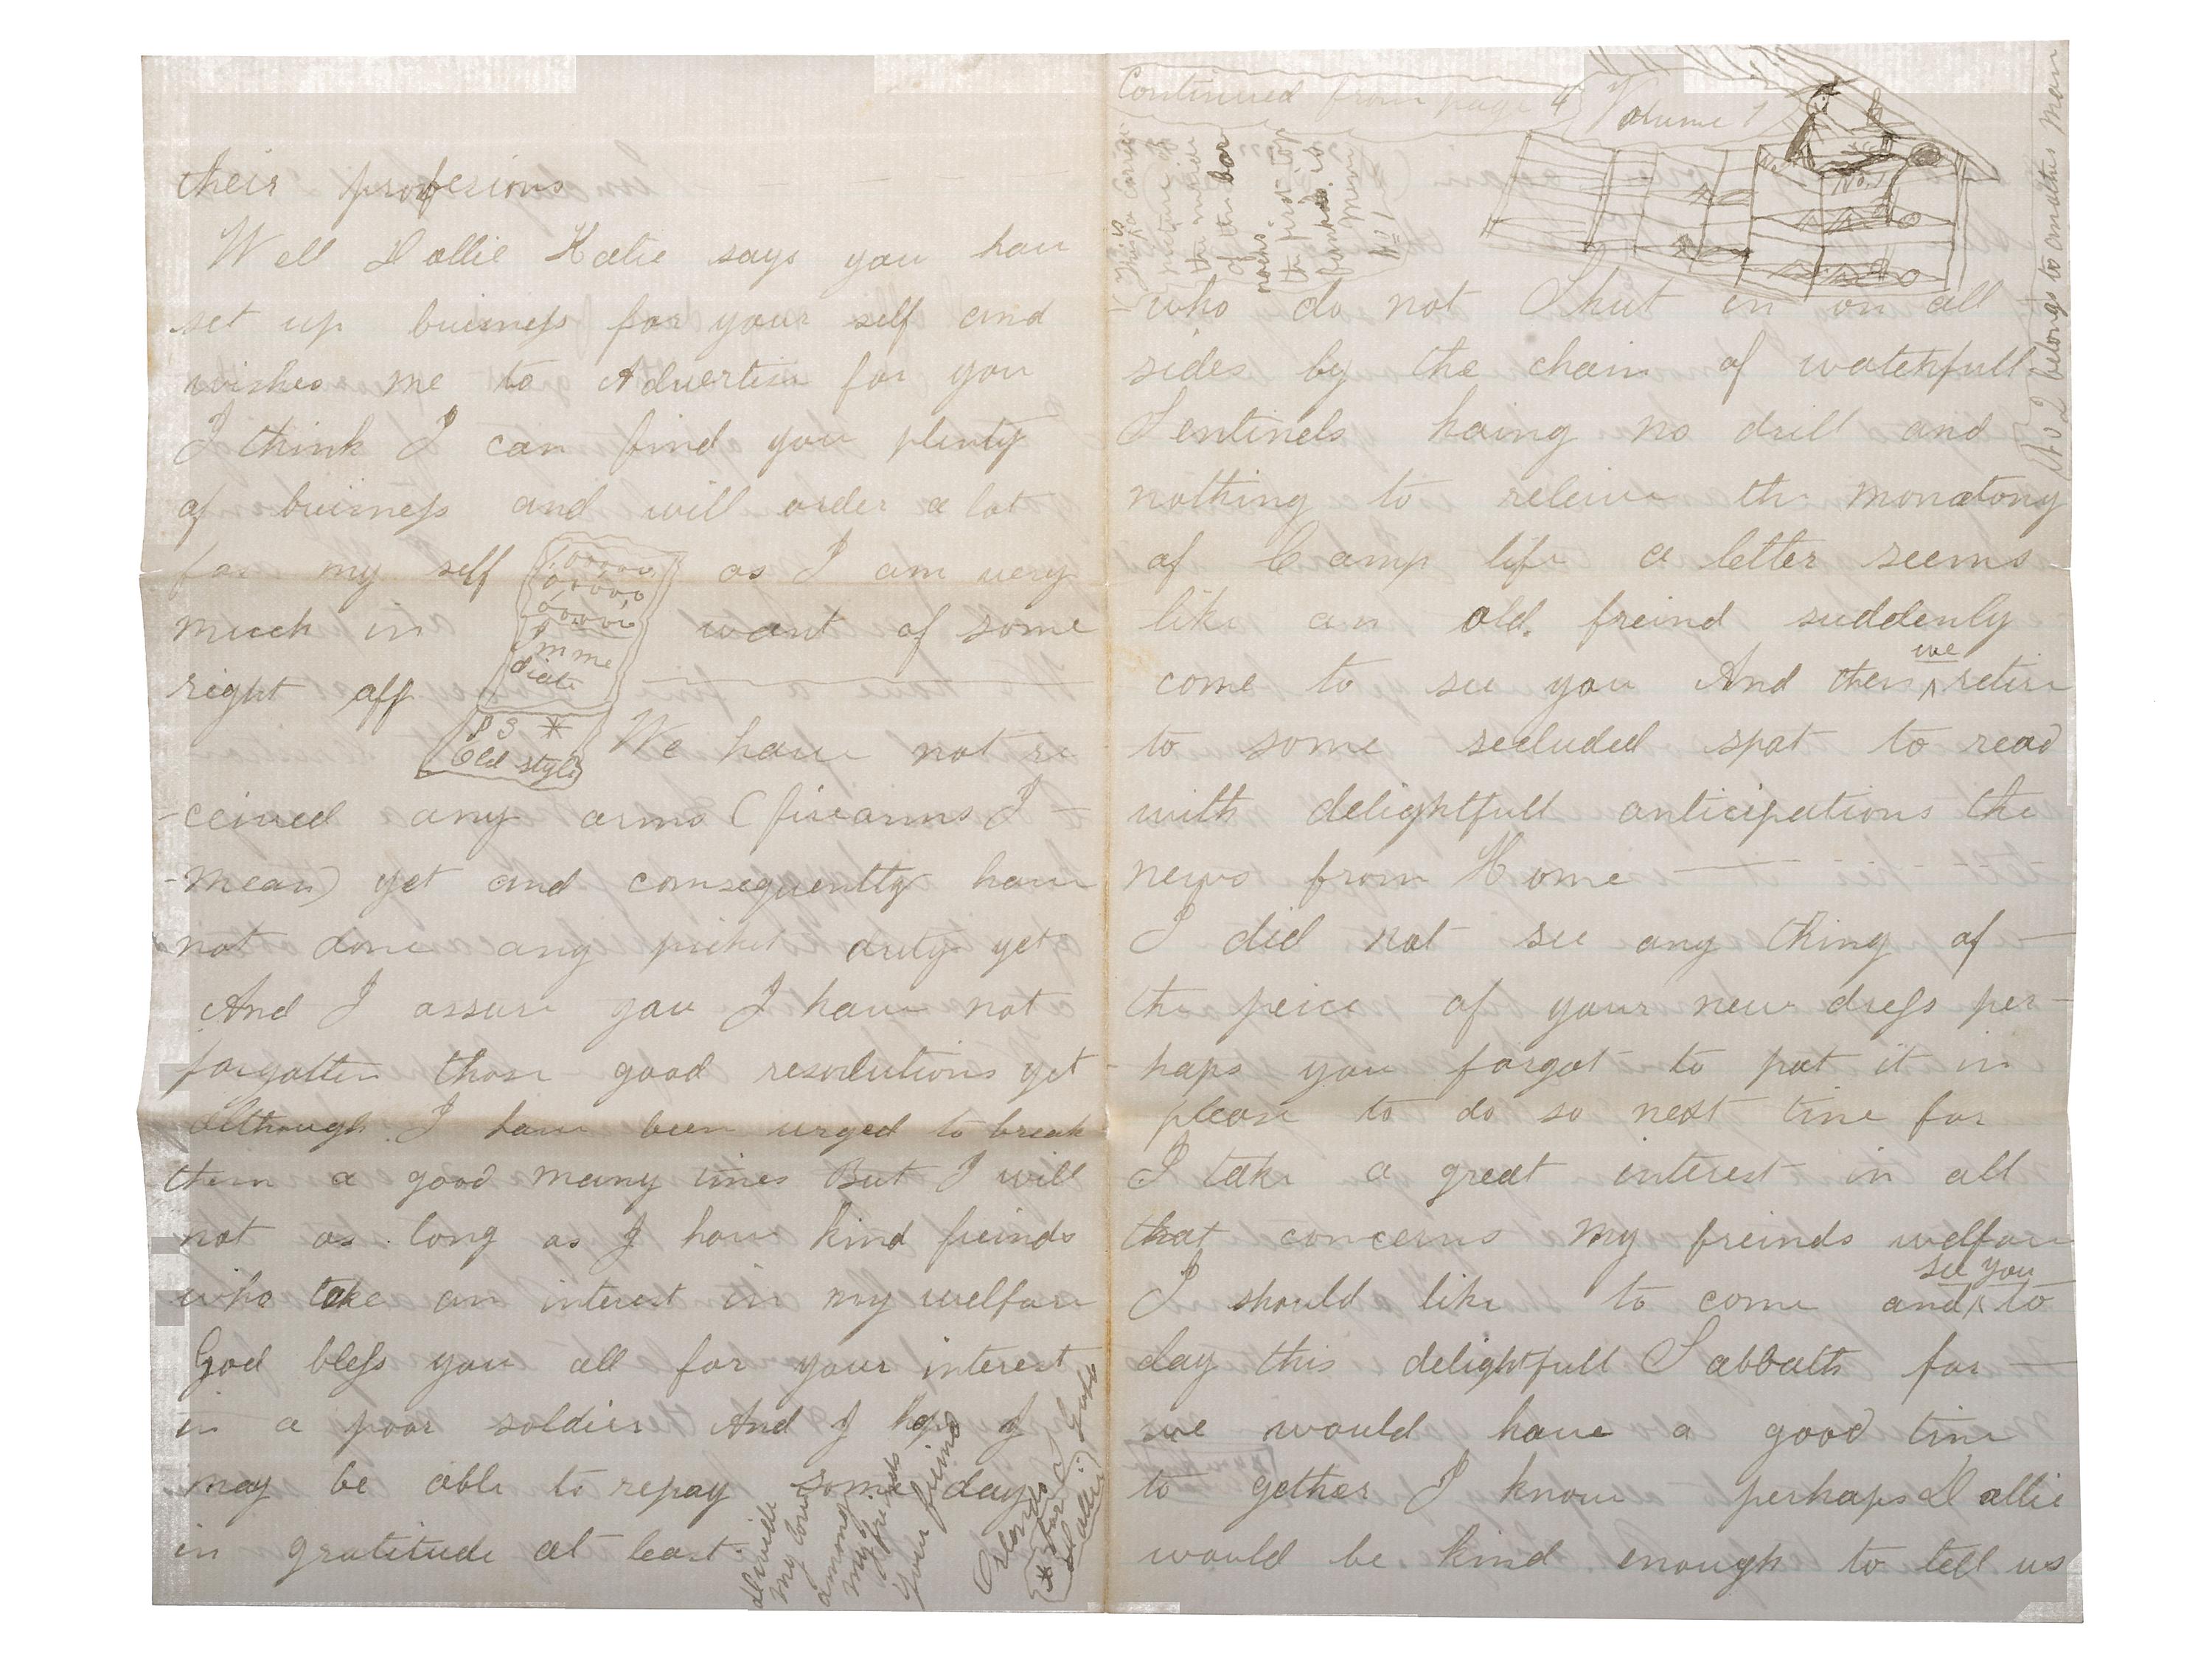 their profesions
Well Dallie Katie says you have
set up buisness for your self and
wishes me to Advertise for you
I think I can find you plenty
of buisness and will order a lot
for my self as I am very
much in want of some
right off
1,00000,
000000
000000
I mme
diate
P S *
Old style
We have not re
-ceived any arms (firearms I
-mean) yet and consequently have
not done any picket duty yet
And I assure you I have not
forgotten those good resolutions yet
although I have been urged to break
them a good many times But I will
not as long as I have kind freinds
who take an interest in my welfare
God bless you all for your interest
in a poor soldier And I hope I
may be able to repay some day
in gratitude at least
Divide
my love
among
my
freinds
Your freind
Orlando
* for
Dallie
Continued from page 4 Volume 1
This is
a
picture of
the inside
of the bar
racks.
the first top
bunk is
mein
No 1
No.1
No 2 belongs to another man
who do not Shut in on all
sides by the chain of watchfull
Sentinels having no drill and
nothing to releive the monatony
of Camp life a letter seems
like an old freind suddenly
come to see you And then we retire
to some secluded spot to read
with delightfull anticipations the
news from Home
I did not see any thing of
the peice of your new dress per-
haps you forgot to put it in
please to do so next time for
I take a great interest in all
that concerns my freinds welfare
I should like to come and see you to
day this delightfull Sabbath for
we would have a good time
to gether I know perhaps Dallie
would be kind enough to tell us